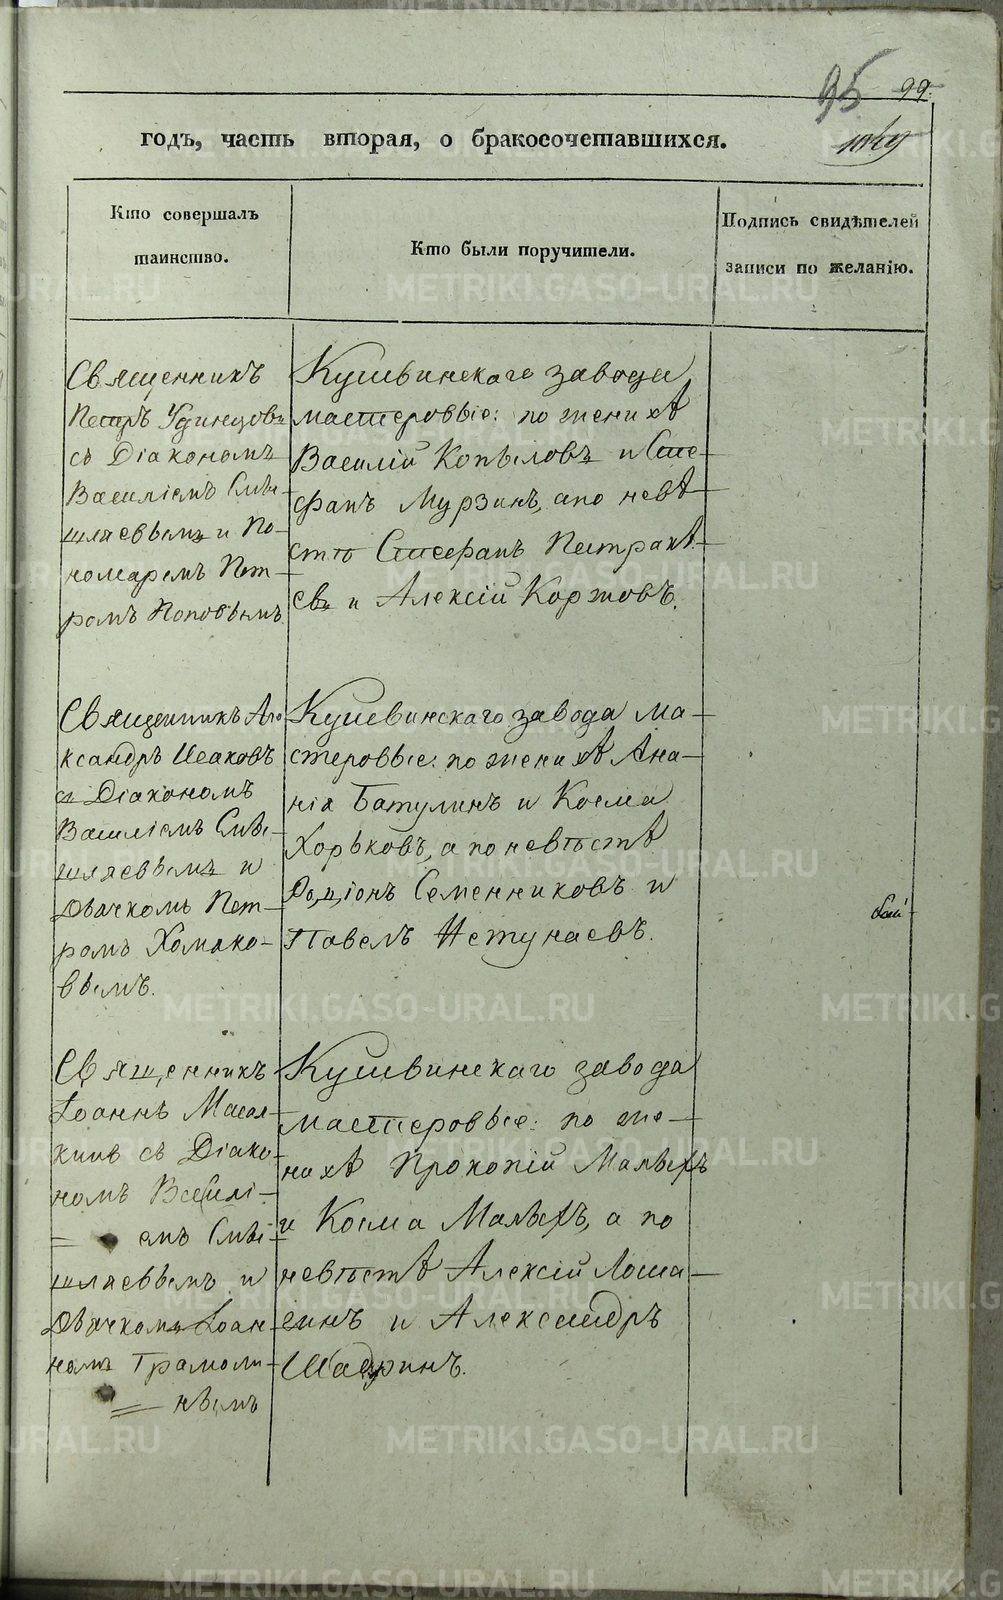 95 99.
годъ, часть вторая, о бракосочетавшихся.
Кто совершалъ
таинство.
Кто были поручители.
Подпись свидѣтелей
записи по желанію.
Священникъ
Петръ Удинцовъ
съ Діакономъ
Василіемъ Смы-
шляевымъ и По-
номаремъ Пет-
ромъ Поповымъ.
Кушвинскаго завода
мастеровые: по женихѣ
Василій Копыловъ и Сте-
фанъ Мурзинъ, а по невѣ-
стѣ Стефанъ Петрахѣ-
евъ и Алексій Коржовъ.
Священникъ Але
ксандръ Исаковъ
съ Діакономъ
Василіемъ Смы-
шляевымъ и
Дьячкомъ Пет-
ромъ Хомяко-
вымъ.
Кушвинскаго завода ма-
стеровые: по женихѣ Ана-
нія Батулинъ и Косма
Хорьковъ, а по невѣстѣ
Родіонъ Семенниковъ и
Павелъ Нетунаевъ.
Священникъ
Іоаннъ Масал-
кинъ съ Діако-
номъ Василі-
емъ Смы-
шляевымъ и
Дьячкомъ Іоан-
номъ Трамоли-
нымъ
Кушвинскаго завода
мастеровые: по же-
нихѣ Прокопій Малыхъ
и Косма Малыхъ, а по
невѣстѣ Алексій Лоша-
гинъ и Александръ
Шадринъ.
METRIKI.GASO-URAL.RU